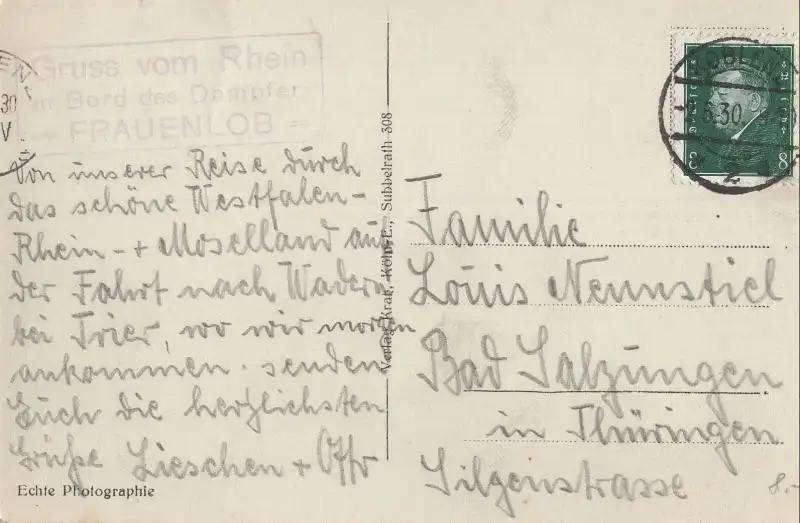 Gruss vom Rhein
an Bord des Dampfer
— FRAUENLOB —
Von unserer Reise durch
das schöne Westfalen-
Rhein- + Moselland auf
der Fahrt nach Wadern
bei Trier, wo wir morgen
ankommen. senden
Euch die herzlichsten
Grüße Lieschen + Otto
Echte Photographie
Verlag Kratz, Köln-E., Subbelrath 308
COBLENZ
30
2
Deutsches Reich
8 8
Familie
Louis Neunstiel
Bad Salzungen
in Thüringen
Silgenstrasse
8.-